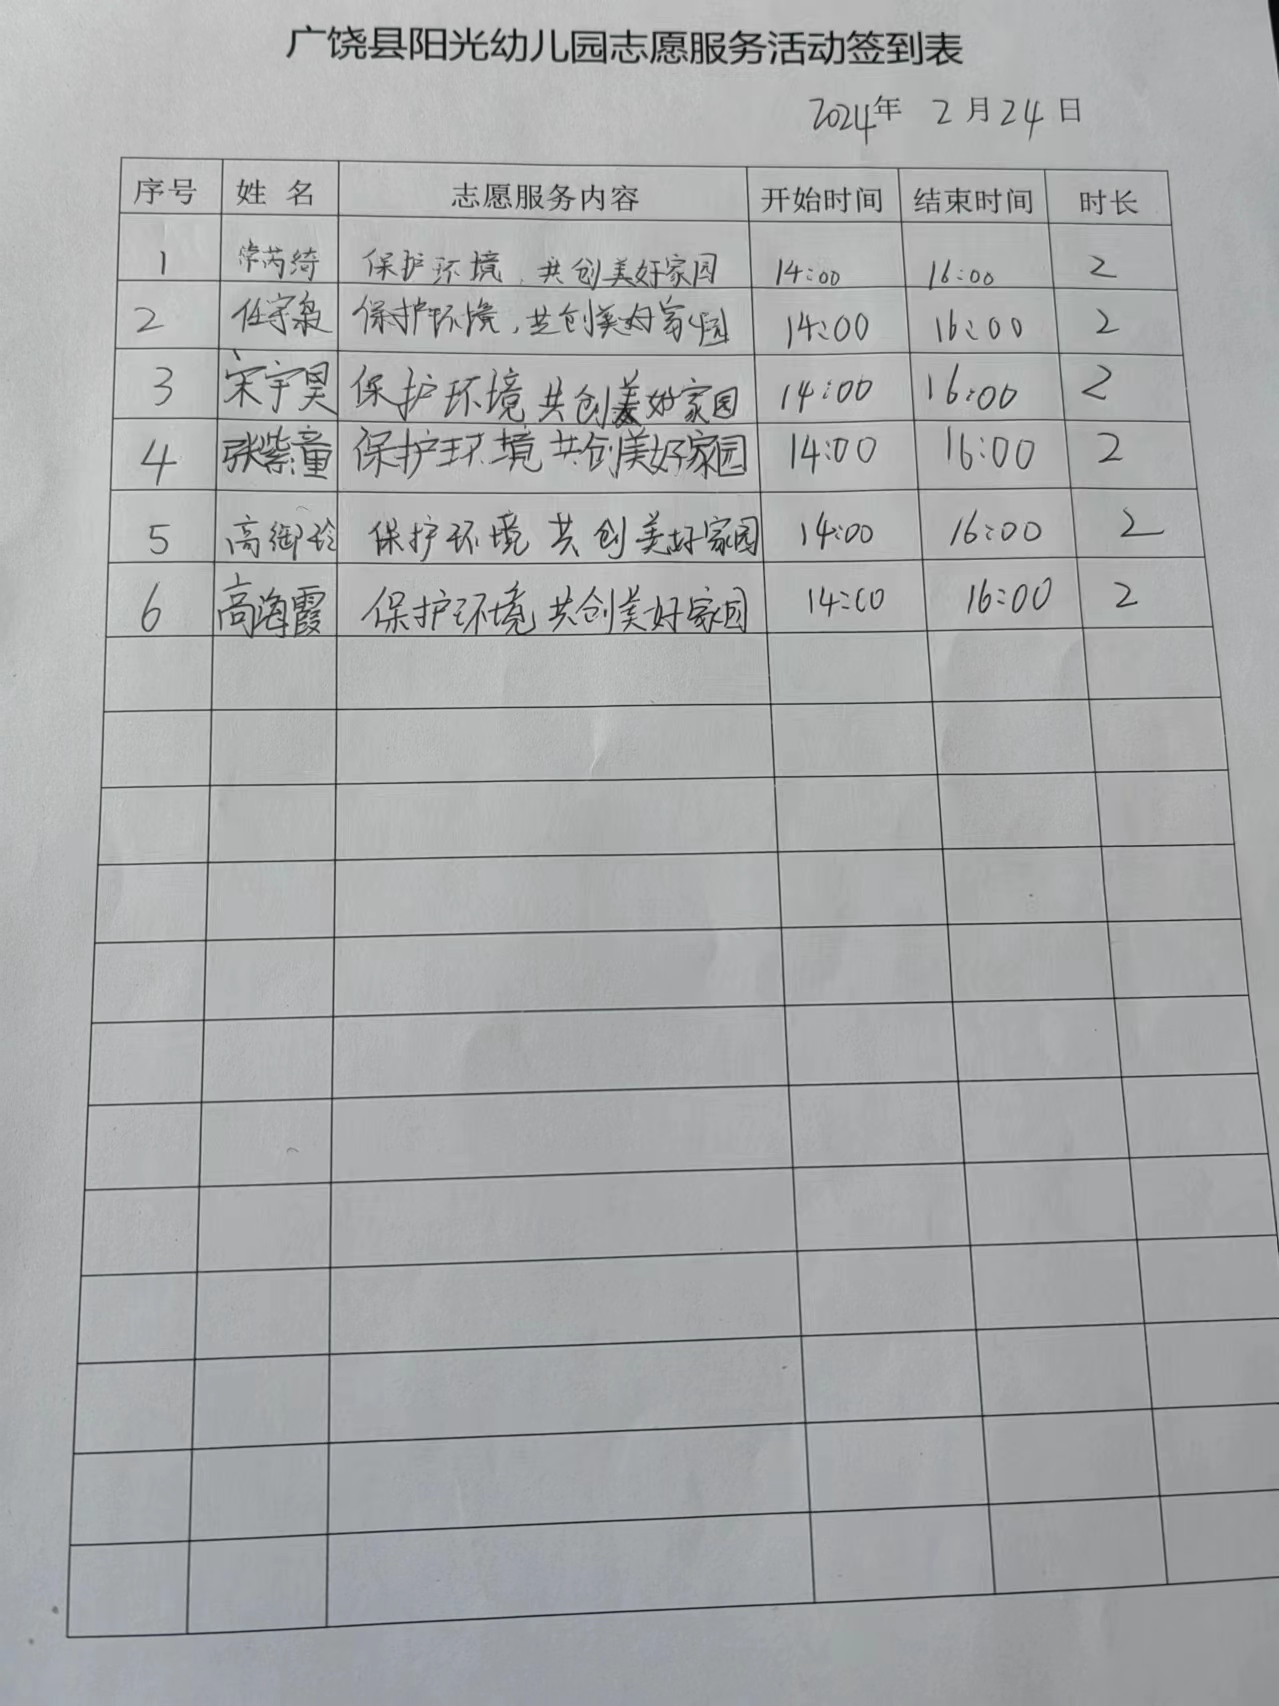 广饶县阳光幼儿园志愿服务活动签到表
2024年 2月24日
序号 姓 名 志愿服务内容 开始时间 结束时间 时长
1 芮绮 保护环境,共创美好家园 14:00 16:00 2
2 任守枭 保护环境,共创美好家园 14:00 16:00 2
3 宋宇昊 保护环境 共创美好家园 14:00 16:00 2
4 张紫童 保护环境 共创美好家园 14:00 16:00 2
5 高御玲 保护环境 共创美好家园 14:00 16:00 2
6 高海霞 保护环境 共创美好家园 14:00 16:00 2